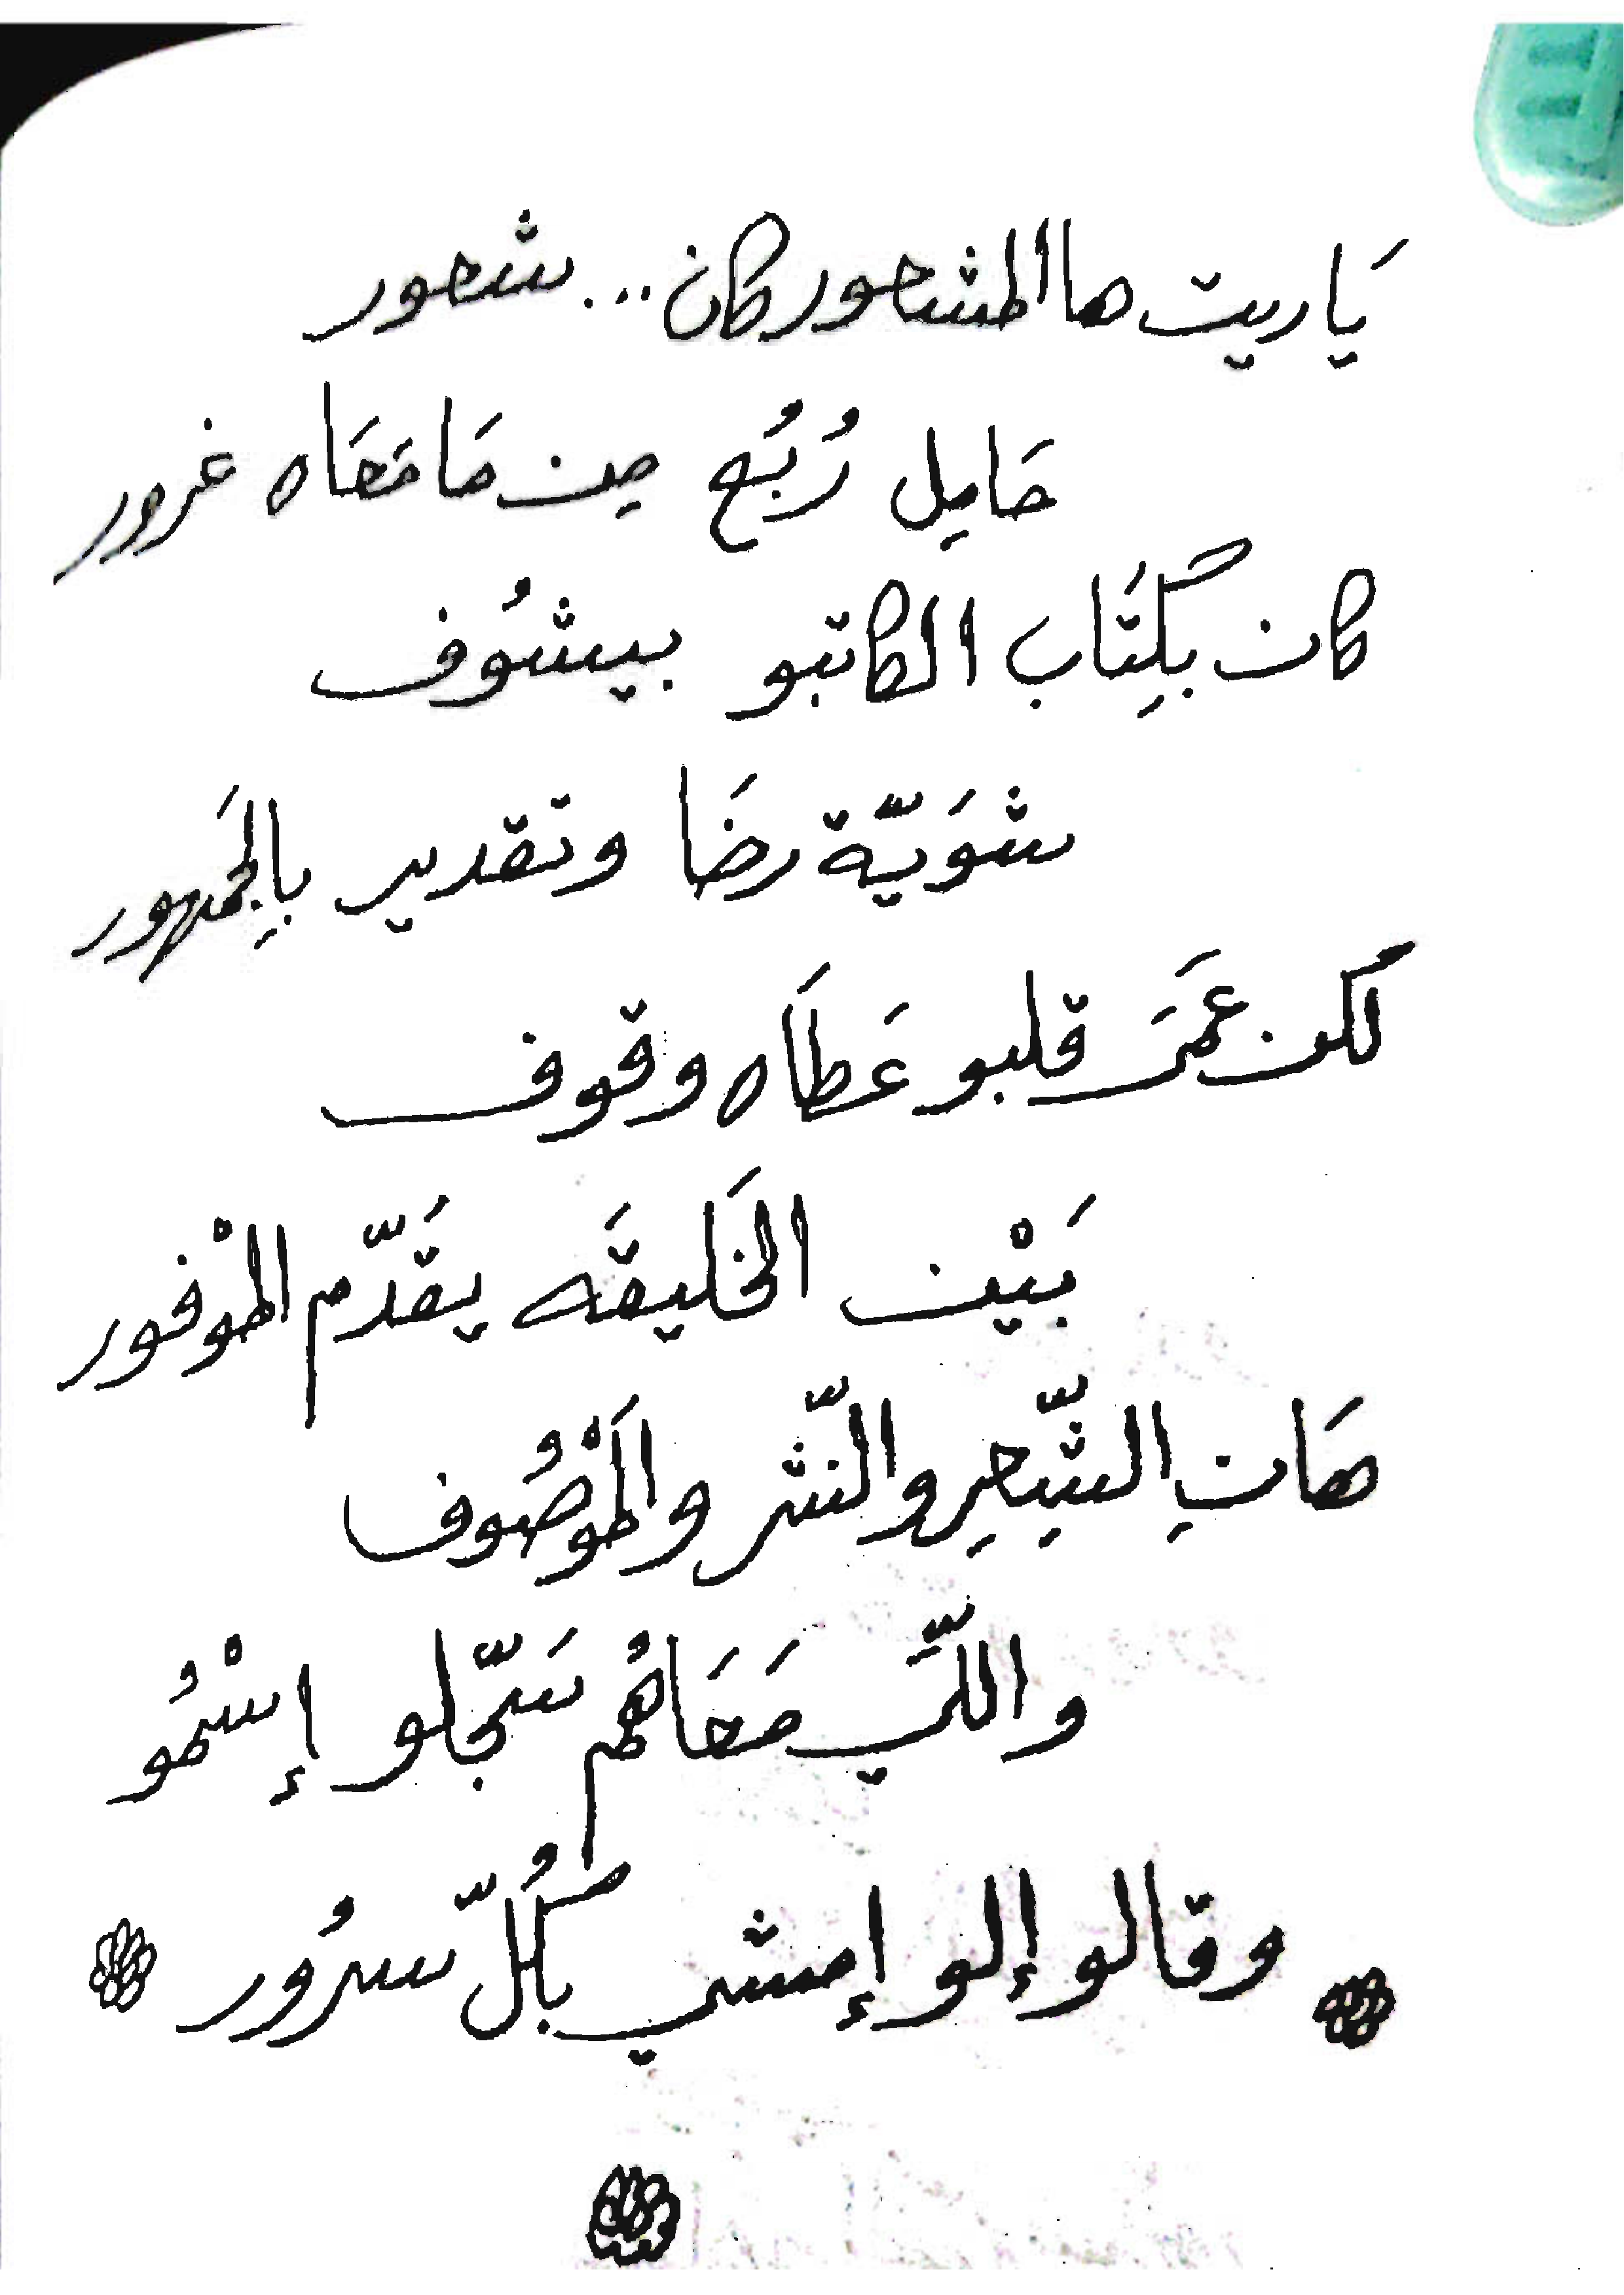 يَا ريت هالمشعور كان... شعور
حَامِل رُبُع مِن مَا مَعَاه غرور
كان بِكِتَاب الكاتبو بيشُوف
شوَيّة رضَا وتقدير بِالجَمهور
لكن عَمَرَ قلبو عَطاَه وقوف
بَيْن الخَليقَه يقَدّم المَوْفور
هَاتِ الشّعِر والنّثر والمَوْصُوف
واللّي مَعَاهُم سَجّلو إسْمُو
وقالو إلو إمشي بكُلّ سرُور